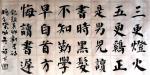 三更燈火
五更鷄正
是男兒讀
書時黑髮
不知勤學
早白首方
悔讀書遲